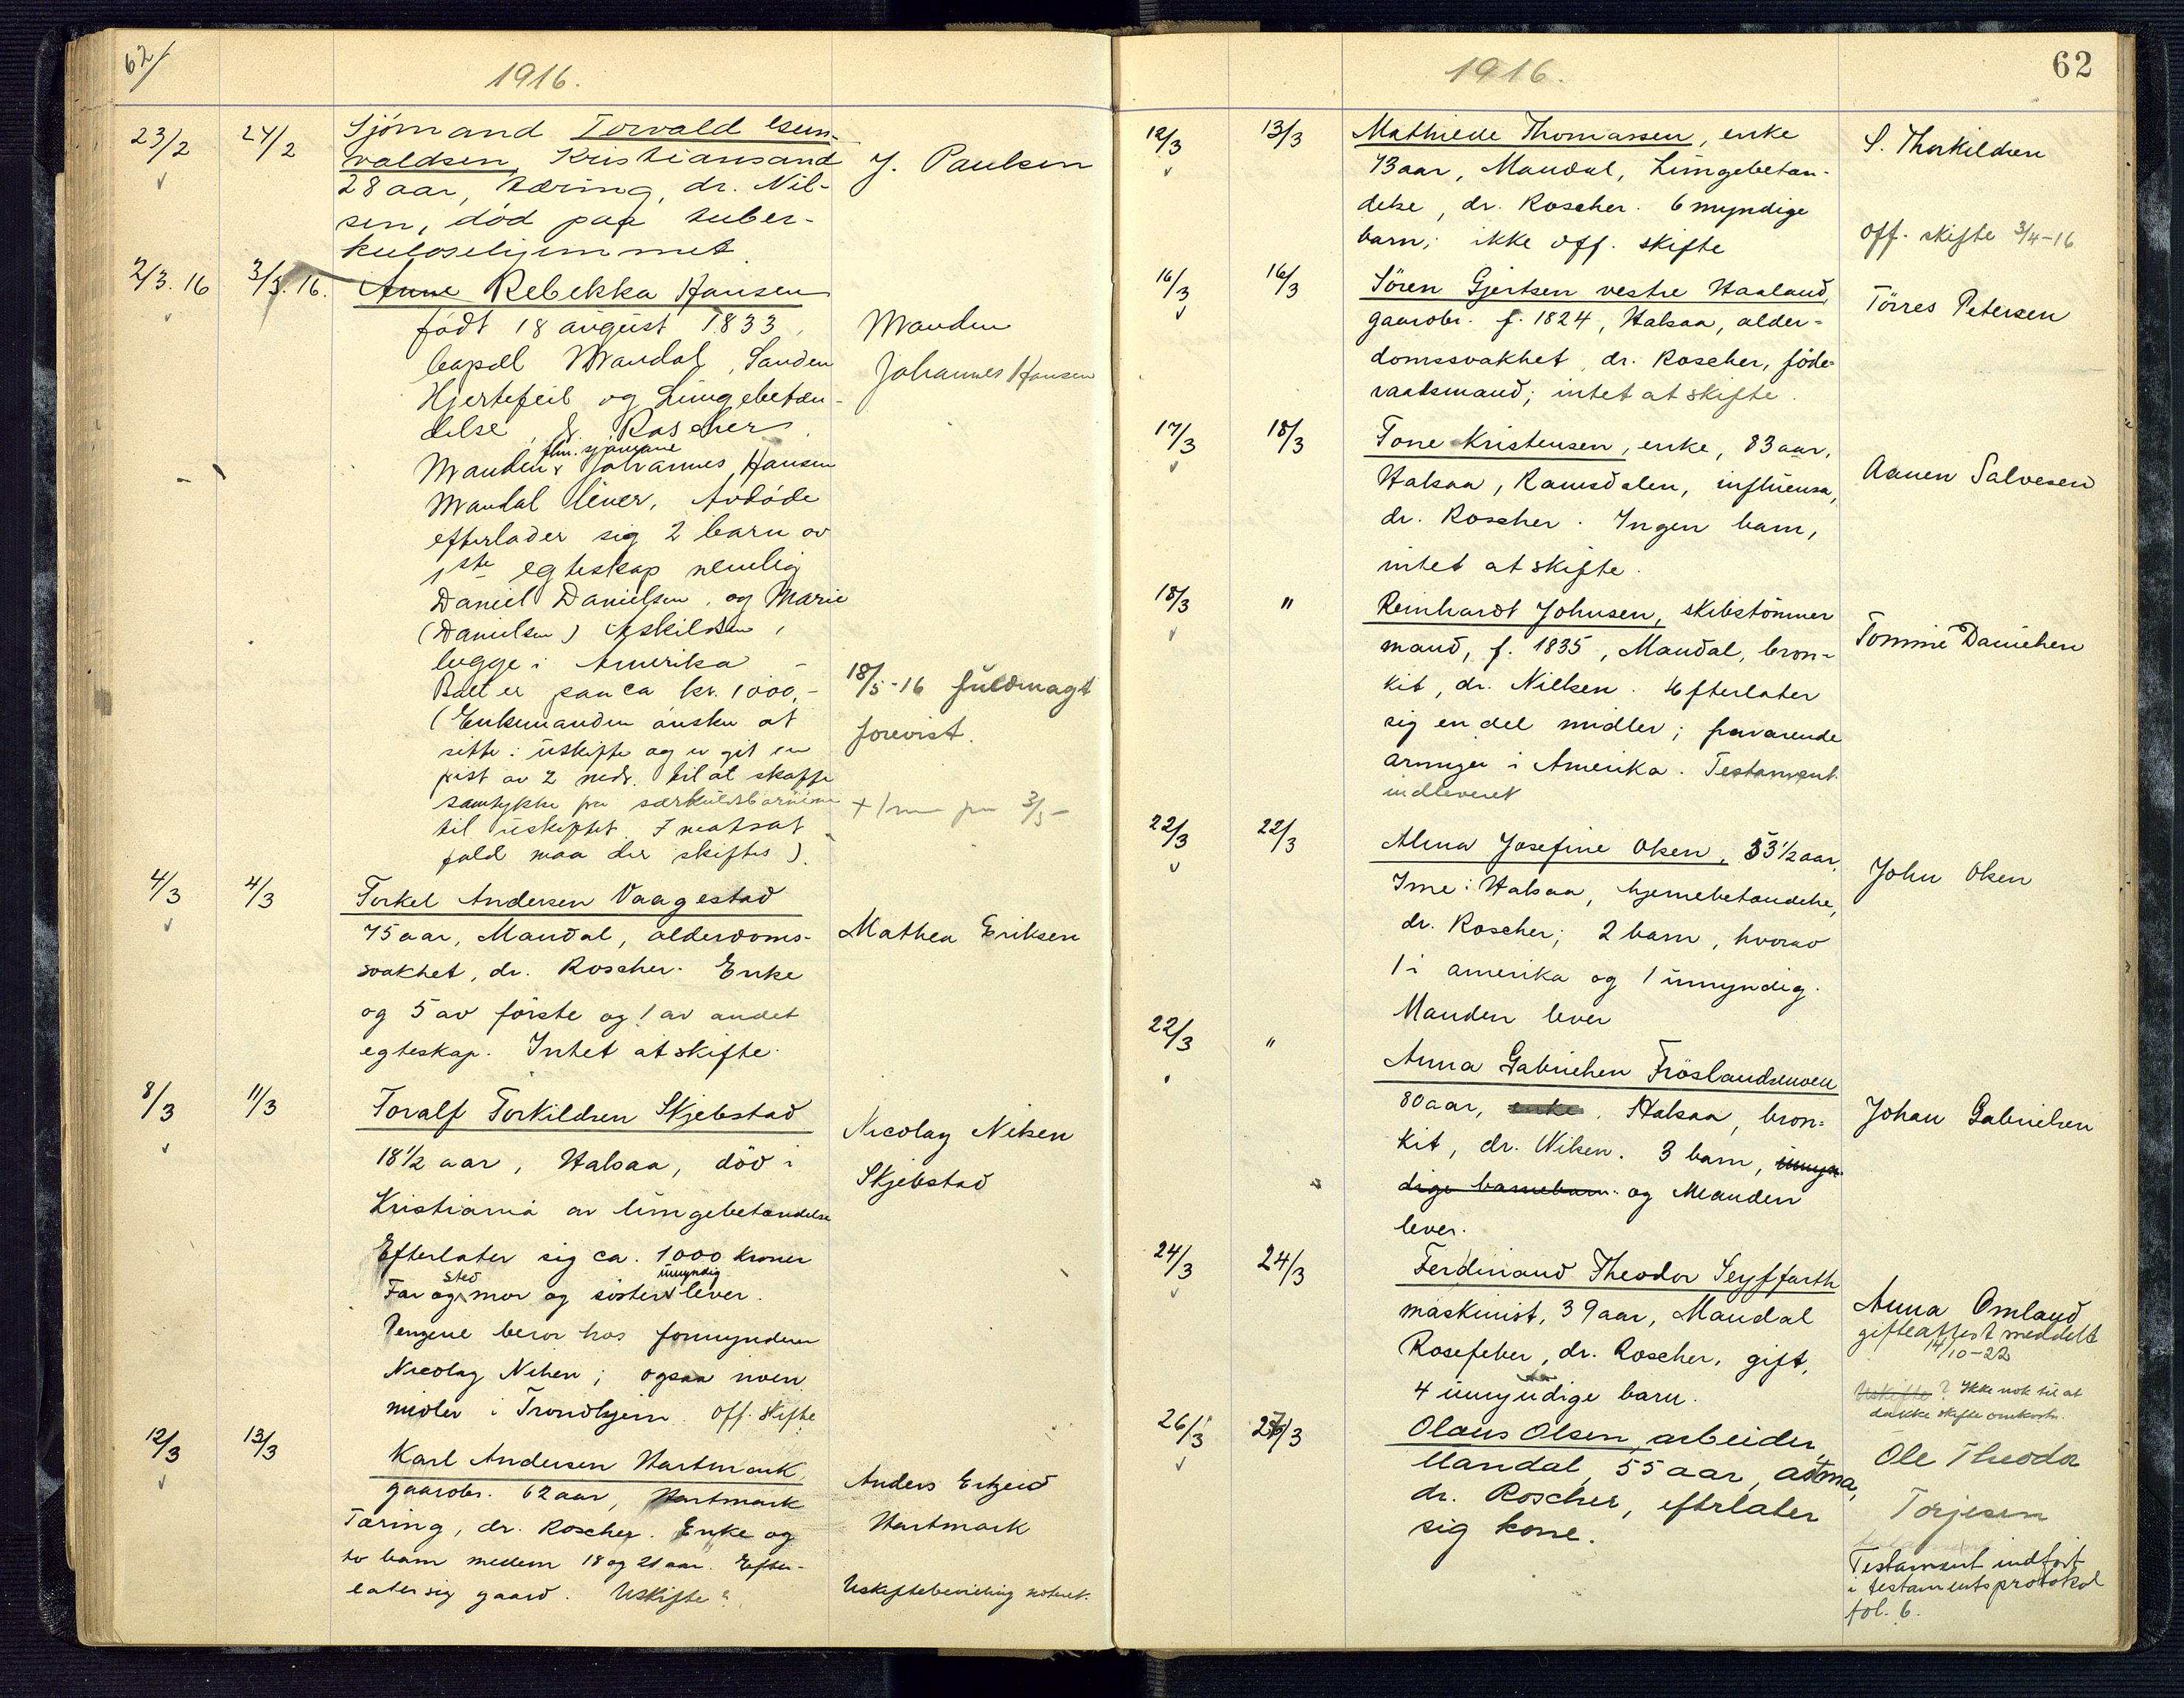 62/
1916.
23/2 24/2 Sjømand Torvald
valdsen, Kristiansand J. Paulsen
28 aar, tæring, dr. Nil-
sen, død paa tuber-
kulosehjemmet.
2/3.16 3/3.16. Anne Rebekka Hansen
født 18 august 1833,
Mandal, Sanden
Manden
Johannes Hansen
Hjertefeil og Lungebetæn-
delse, Roscher.
fhv. sjømand
Manden Johannes Hansen
Mandal lever. Avdøde
efterlader sig 2 barn av
1ste egteskap nemlig
Daniel Danielsen, og Marie
(Danielsen) Eskildsen,
begge i Amerika
Boet er paa ca kr. 1000,-
(Enkemanden ønsker at
sitte i uskifte og er git en
frist av 2 mdr. til at skaffe
samtykke fra særkuldsbarnene
til uskiftet. I motsat
fald maa der skiftes).
18/5-16 fuldmagt
forevist.
4/3 4/3 Torkel Andersen Vaagestad
75 aar, Mandal, alderdoms- Mathea Eriksen
svakhet, dr. Roscher. Enke
og 5 av første og 1 av andet
egteskap. Intet at skifte.
8/3 11/3 Toralf Torkildsen Skjebstad
18 1/2 aar, Halsaa, død i
Nicolay Nilsen
Skjebstad
Kristiania av lungebetændelse
Efterlater sig ca. 1000 kroner
sted umyndig
Far og mor og søster lever.
Pengene beror hos formynderen
Nicolay Nilsen; ogsaa noen
midler i Trondhjem. Off. skifte
12/3 13/3 Karl Andersen Hartmark,
gaardbr. 62 aar, Hartmark
Anders Erkjeid
Hartmark
Tæring, dr. Roscher. Enke og
to barn mellem 18 og 21 aar. Efter-
later sig gaard. Uskifte? Uskiftebevilling noteret.
1916. 62
12/3 13/3 Mathilde Thomassen, enke S. Thorkildsen
73 aar, Mandal, Lungebetæn-
delse, dr. Roscher. 6 myndige
barn; ikke off. skifte
off. skifte 3/4-16
16/3 16/3 Søren Gjertsen vestre Haaland,
gaardbr. f. 1824, Halsaa, alder- Tørres Petersen
domssvakhet, dr. Roscher, føde-
raadsmand; intet at skifte.
17/3 18/3 Tone Kristensen, enke, 83 aar,
Halsaa, Ramsdalen, influensa, Aanen Salvesen
dr. Roscher. Ingen barn,
intet at skifte.
18/3 " Reinhardt Johnsen, skibstømmer
mand, f. 1835, Mandal, bron- Tomine Danielsen
kit, dr. Nilsen. Efterlater
sig en del midler; fraværende
arvinger i Amerika. Testament
indleveret
22/3 22/3 Alma Josefine Olsen, 53 1/2 aar, John Olsen
Ime i Halsaa, hjernebetændelse,
dr. Roscher; 2 barn, hvorav
1 i amerika og 1 umyndig.
Manden lever
22/3 " Anna Gabrielsen Frøslandsmoen
80 aar, enke, Halsaa, bron- Johan Gabrielsen
kit, dr. Nilsen. 3 barn, umyn-
dige barnebarn. og Manden
lever.
24/3 24/3 Ferdinand Theodor Seyffarth
maskinist, 39 aar, Mandal Anna Omland
Rosefeber, dr. Roscher, gift, gifteattest meddelt
14/10-22
4 umyndige barn.
Uskifte? Ikke nok til at
dække skifte omkostn.
26/3 27/3 Olaus Olsen, arbeider,
Mandal, 55 aar, astma,
dr. Roscher, efterlater
sig kone.
Ole Theodor
Torjesen
Testament indført
i testamentsprotokol
fol. 6.